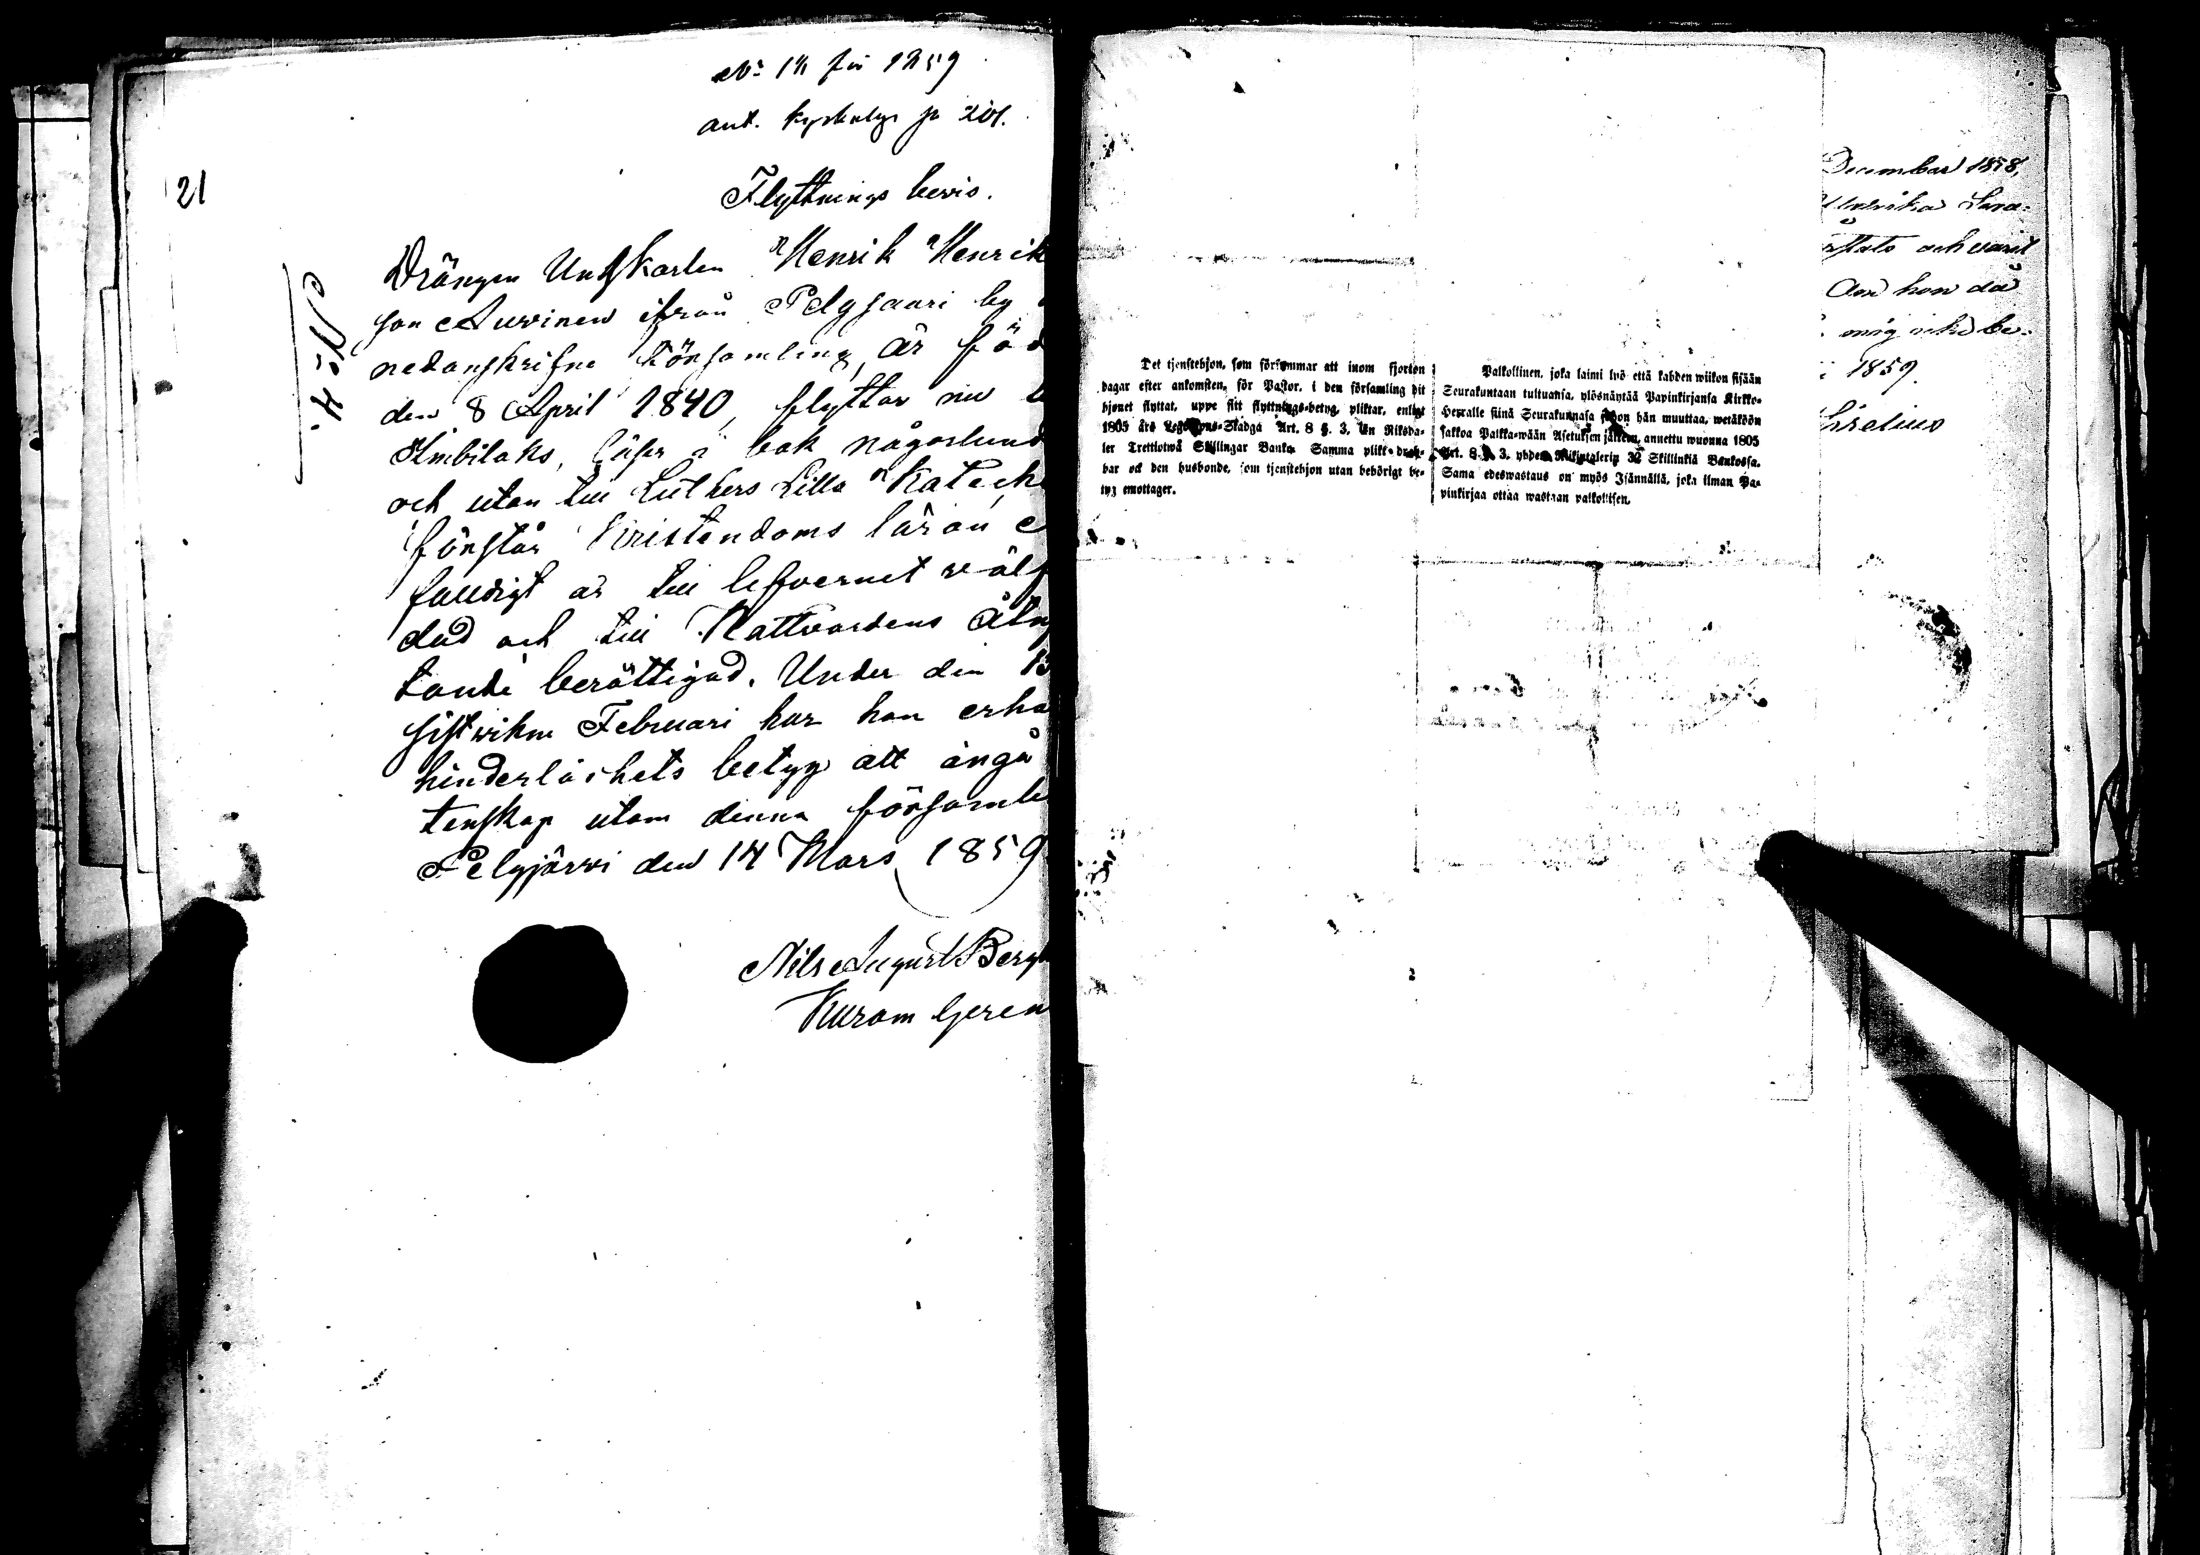 No 14 för 1859
ant. Kyrkobys p 201.
21
Flyttnings bevis.
No 4.
Drängen Ungkarlen Henrik Henrik
son Auvinen ifrån Pelgjaari by
nedanskrifne Församling, är föd
den 8 April 1840, flyttar nu
Imbilaks, läser i bok någorlund
och utan till Luthers Lilla Katech
förstår Kristendoms läran
faldigt är till lefvernet välf
dad och till Nattvardens Åtn
tande berättigad. Under den
sistvikne Februari har han erha
hinderlöshets betyg att ingå
tenskap utom denna församli
Pelgjärvi den 14 Mars 1859
Nils August Bergh
Kuram Geren
Det tjenstehjon, som försummar att inom fjorton
dagar efter ankomsten, för Pastor, i den församling dit
hjonet flyttat, uppe sitt flyttnings-betyg, pliktar, enligt
1805 års Legohjons-Stadga Art. 8 §. 3. En Riksda-
ler Trettiotwå Skillingar Banko. Samma plikt drab-
bar ock den husbonde, som tjenstehjon utan behörigt be-
tyg emottager.
Palkollinen, joka laimi lyö että kahden wiikon sisään
Seurakuntaan tultuansa, ylösnäytää Papinkirjansa Kirkko-
Herralle siinä Seurakunnasa johon hän muuttaa, wetäköön
sakkoa Palkka-wään Asetuksen jälkeen, annettu wuonna 1805
Art. 8. §. 3. yhden Riksitalerin 32 Skillinkiä Bankossa.
Sama edeswastaus on myös Isännällä, joka ilman Pa-
pinkirjaa ottaa wastaan palkollisen.
December 1858,
Ulrika Sara-
och varit
Om hon då
mig icke be-
1859.